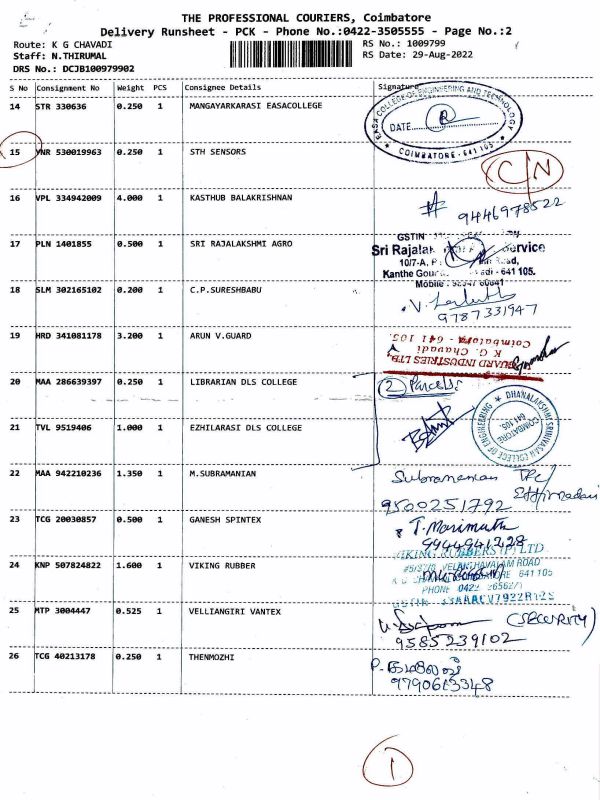 THE PROFESSIONAL COURIERS, Coimbatore
Delivery Runsheet - PCK - Phone No.:0422-3505555 - Page No.:2
Route: K G CHAVADI RS No.: 1009799
Staff: N.THIRUMAL RS Date: 29-Aug-2022
DRS No.: DCJB100979902
S No Consignment No Weight PCS Consignee Details Signature
14 STR 330636 0.250 1 MANGAYARKARASI EASACOLLEGE
EASA COLLEGE OF ENGINEERING AND TECHNOLOGY
DATE
COIMBATORE - 641 105.
15 VNR 530019963 0.250 1 STH SENSORS
C/N
16 VPL 334942009 4.000 1 KASTHUB BALAKRISHNAN
9446978522
17 PLN 1401855 0.500 1 SRI RAJALAKSHMI AGRO
GSTIN
Sri Rajalak Service
10/7-A, Road,
Kanthe Gou adi - 641 105.
Mobile : 98947 60841
18 SLM 302165102 0.200 1 C.P.SURESHBABU
9787331947
19 HRD 341081178 3.200 1 ARUN V.GUARD
GUARD INDUSTRIES LTD.
K G. Chavadi
Coimbatore - 641 105.
20 MAA 286639397 0.250 1 LIBRARIAN DLS COLLEGE
2 Parcels
21 TVL 9519406 1.000 1 EZHILARASI DLS COLLEGE
DHANALAKSHMI SRINIVASAN COLLEGE OF ENGINEERING
COIMBATORE
641 105.
22 MAA 942210236 1.350 1 M.SUBRAMANIAN
Subramanian
9500251792
23 TCG 20030857 0.500 1 GANESH SPINTEX
T. Marimuth
9944941228
24 KNP 507824822 1.600 1 VIKING RUBBER
VIKING RUBBERS (P) LTD
VELANTHAVALAM ROAD
COIMBATORE 641 105
PHONE 0422
25 MTP 3004447 0.525 1 VELLIANGIRI VANTEX
(SECURITY)
9585239102
26 TCG 40213178 0.250 1 THENMOZHI
9790613348
1